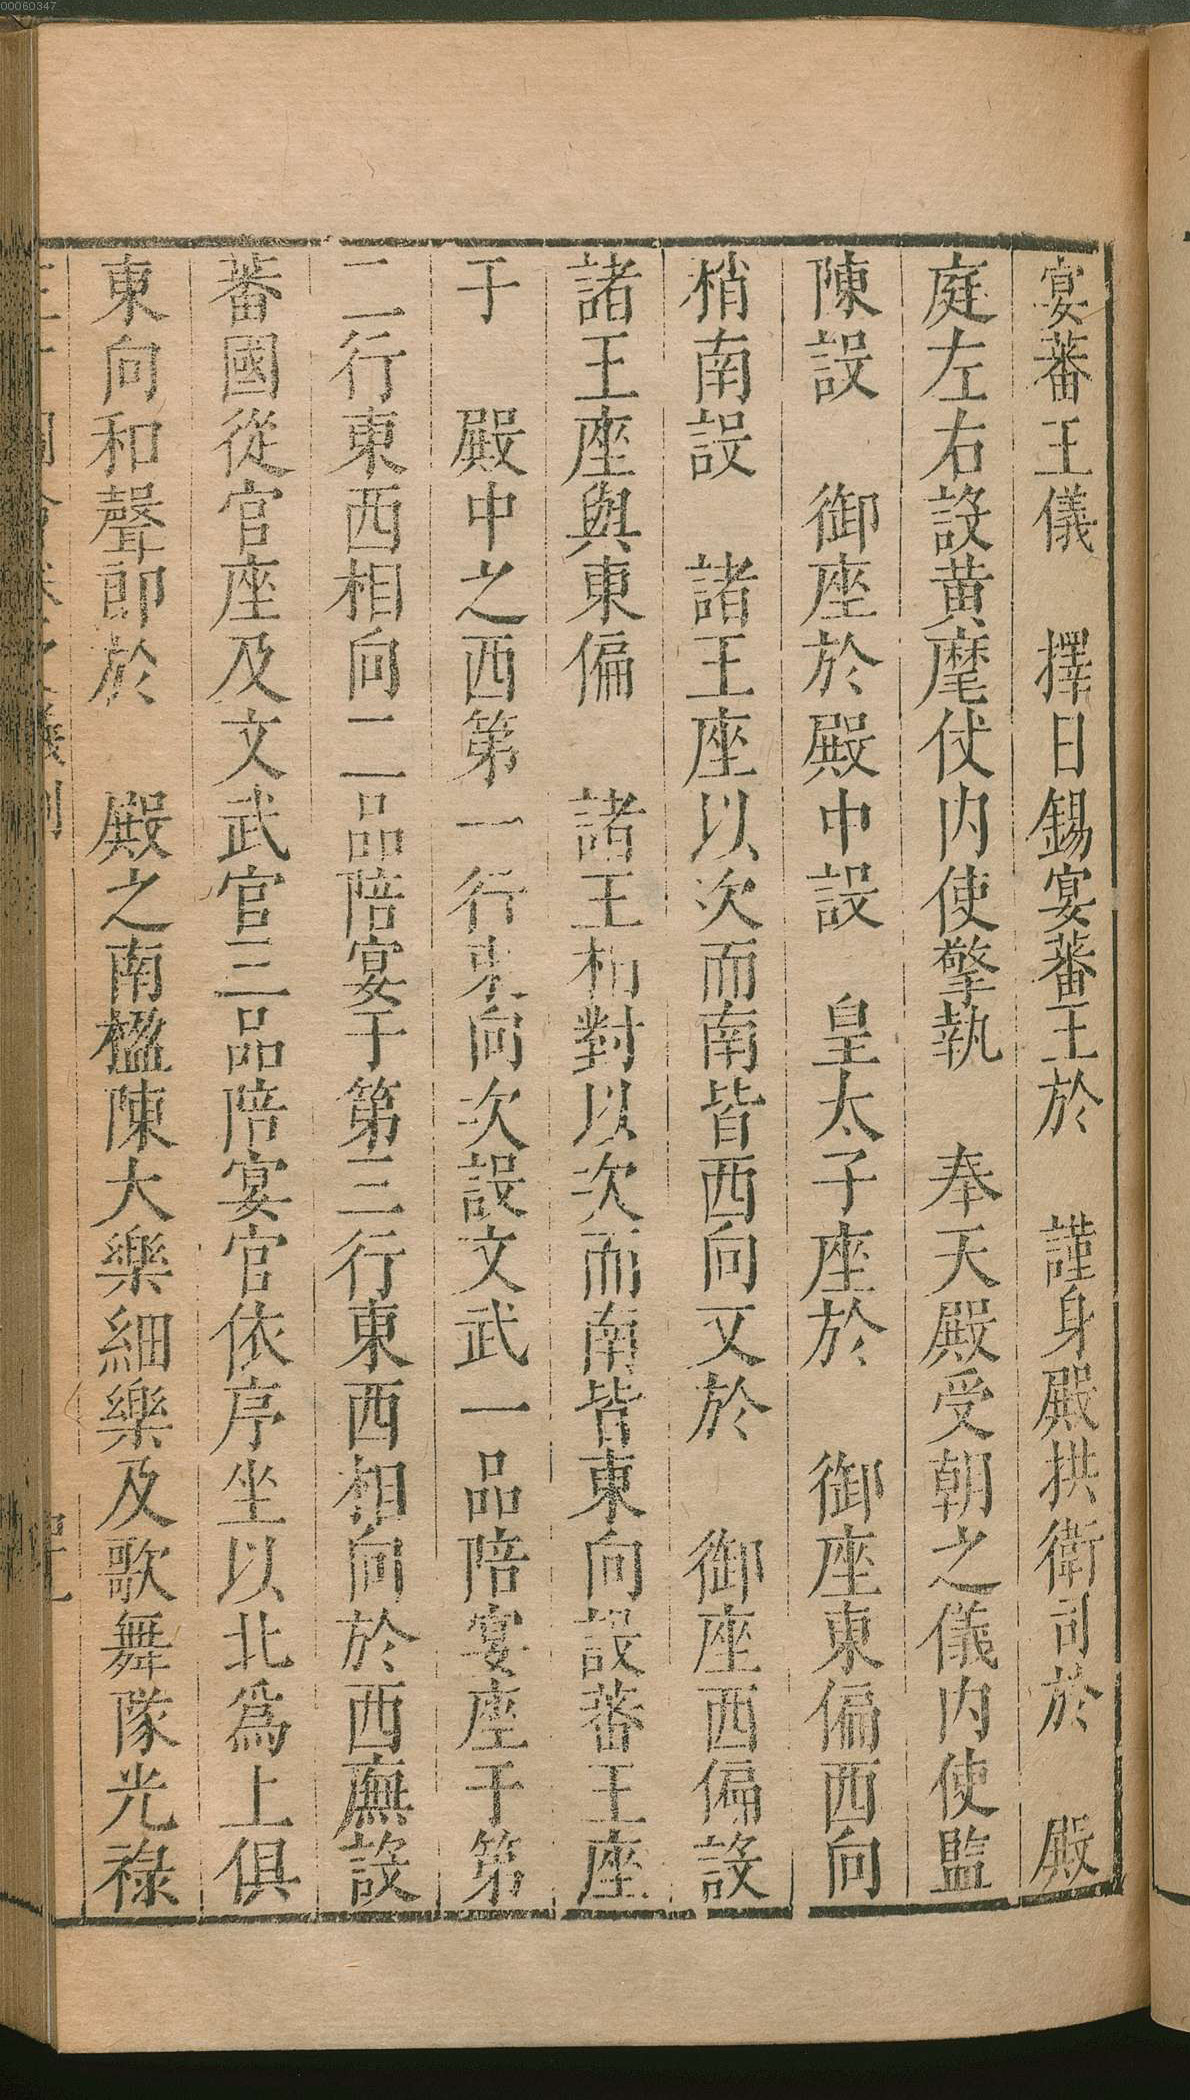 00060347
宴蕃王儀　擇日錫宴蕃王於　謹身殿拱衛司於　殿
庭左右設黃麾仗内使擎執　奉天殿受朝之儀内使監
陳設　御座於殿中設　皇太子座於　御座東偏西向
稍南設　諸王座以次而南皆西向又於　御座西偏設
諸王座與東偏　諸王相對以次而南皆東向設蕃王座
于　殿中之西第一行東向次設文武一品陪宴座于第
二行東西相向二品陪宴于第三行東西相向於西廡設
蕃國從官座及文武官三品陪宴官依序坐以北爲上俱
東向和聲郎於　殿之南楹陳大樂細樂及歌舞隊光祿